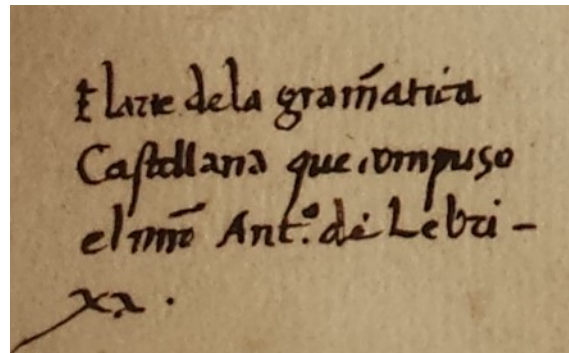 El arte de la gram̃atica
Castellana que compuso
el mr̃o Ant.º de Lebri-
xa.